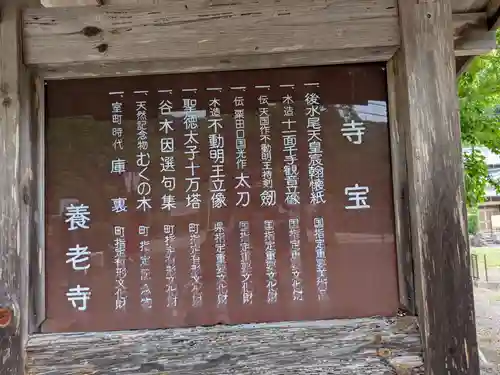 寺宝
一後水尾天皇宸翰懐紙 国指定重要美術品
一木造十一面千手観音立像 国指定重要文化財
一伝天国作不動明王待刻剱 国指定重要文化財
一伝粟田口国光作太刀 国指定重要文化財
一木造不動明王立像 県指定重要文化財
一聖徳太子十万塔 町指定有形文化財
一谷木因選句集 町指定有形文化財
一天然記念物むくの木 町指定天然記念物
一室町時代庫裏 町指定有形文化財
養老寺